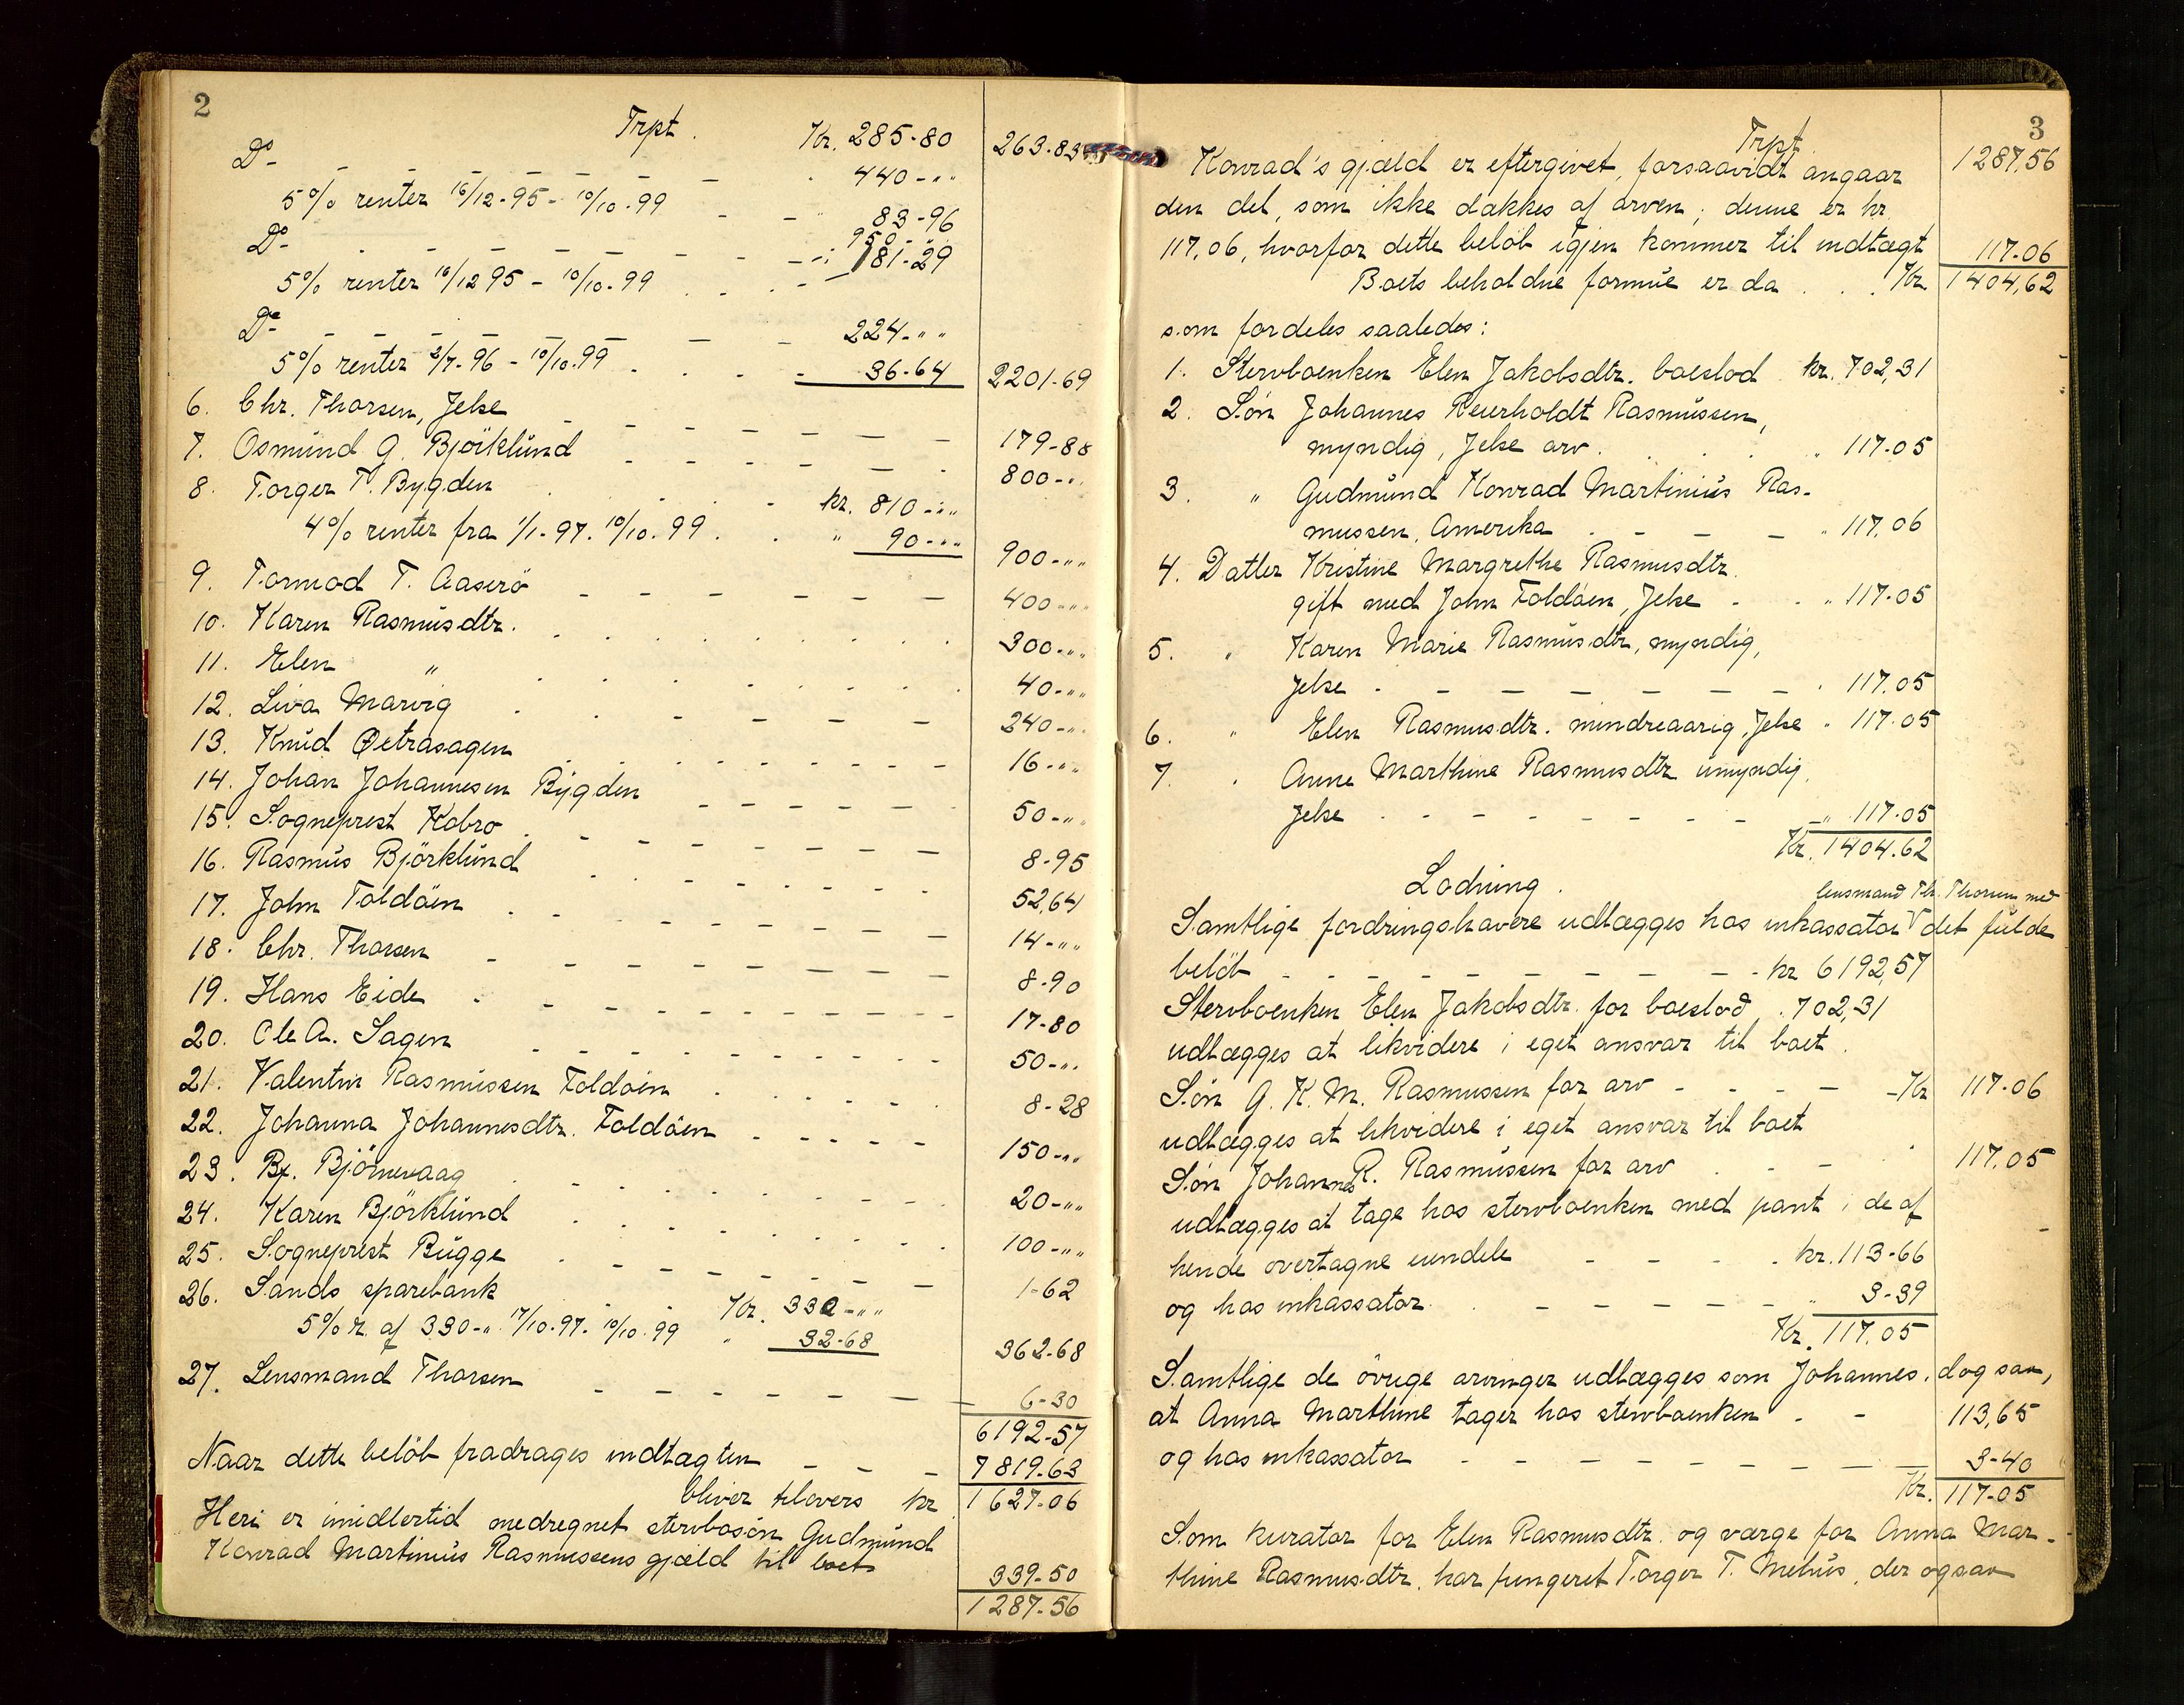 2
Trpt. Kr. 285-80 263-83
Do - - - - - - - 440-""
5% renter 16/12-95 - 10/10-99 - - " 83-96
Do - - - - - - - 950-"
5% renter 16/12 95 - 10/10-99 . . . - 181-29
Do - - - - - - - 224-""
5% renter 2/7-96 - 10/10-99 . . . - 36-64 2201-69
6. Chr. Thorsen, Jelse - - - - - - - 179-88
7. Osmund G. Björklund - - - - - - 800-"
8. Torger T. Bygden . . . . - kr. 810-""
4% renter fra 1/1-97. 10/10-99 . . " 90-"" 900-""
9. Tormod T. Aaserö - - - - - - 400-""
10. Karen Rasmusdtr. . . . . . . 300-""
11. Elen " . . . . . . 40-""
12. Liva Marvig . . . - - - 240-""
13. Knud Øetrasagen . . . - - - 16-""
14. Johan Johannesen Bygden - - - - - 50-""
15. Sogneprest Kobro . - - - - - - - 8-95
16. Rasmus Björklund . . - - - - - 52,64
17. John Foldöen . . - - - - - 14-""
18. Chr. Thorsen - - - - - - - 8-90
19. Hans Eide - - - - - - - 17-80
20. Ole A. Sagen - - - - - - - 50-""
21. Valentin Rasmussen Foldöen . . . . . 8-28
22. Johanna Johannesdtr. Foldöen . . . . - 150-""
23. Bx. Björnevaag . . . . . . 20-""
24. Karen Björklund . . . . . . 100-""
25. Sogneprest Bugge . - - - - - - 1-62
26. Sands sparebank . . . Kr. 330-""
5% r. af 330-" 17/10-97. 10/10-99 " 32-68 362-68
27. Lensmand Thorsen - - - - - - 6-30
6192-57
Naar dette belöb fradrages indtægten - - - 7819-63
bliver tilovers kr 1627-06
Heri er imidlertid medregnet stervbosön Gudmund
Konrad Martinius Rasmussens gjæld til boet 339-50
1287-56
3
Trpt. 1287,56
Konrad's gjæld er eftergivet, forsaavidt angaar
den del, som ikke dækkes af arven; denne er kr.
117,06, hvorfor dette belöb igjen kommer til indtægt 117-06
Boets beholdne formue er da . . . Kr. 1404,62
som fordeles saaledes:
1. Stervboenken Elen Jakobsdtr. boeslod kr. 702,31
2. Sön Johannes Reierholdt Rasmussen,
myndig, Jelse arv . . . . " 117-05
3. " Gudmund Konrad Martinius Ras-
mussen, Amerika . - - - " 117,06
4. Datter Kristine Margrethe Rasmusdtr.
gift med John Foldöen, Jelse - . . " 117-05
5. " Karen Marie Rasmusdtr, myndig,
Jelse . - - - - - - . 117,05
6. " Elen Rasmusdtr. mindreaarig, Jelse " 117-05
7. " Anne Marthine Rasmusdtr umyndig,
Jelse . - - - - - - - " 117-05
Kr. 1404.62
Lodning.
lensmand Th. Thorsen med
Samtlige fordringshavere udlægges hos inkassator V det fulde
belöb - - - - - - - - - kr 6192,57
Stervboenken Elen Jakobsdtr. for boeslod . 702,31
udlægges at likvidere i eget ansvar til boet.
Sön G. K. M. Rasmussen for arv - - - - -Kr 117-06
udlægges at likvidere i eget ansvar til boet
Sön Johannes R. Rasmussen for arv . - - " 117,05
udlægges at tage hos stervboenken med pant i de af
hende overtagne eiendele - - . . kr. 113-66
og hos inkassator . . - - - - - " 3-39
Kr. 117,05
Samtlige de övrige arvinger udlægges som Johannes, dog saa,
at Anna Marthine tager hos stervboenken - - 113,65
og hos inkassator - - - - - - - - 3-40
Kr. 117-05
Som kurator for Elen Rasmusdtr. og værge for Anna Mar-
thine Rasmusdtr. har fungeret Torger T. Mehus, der ogsaa